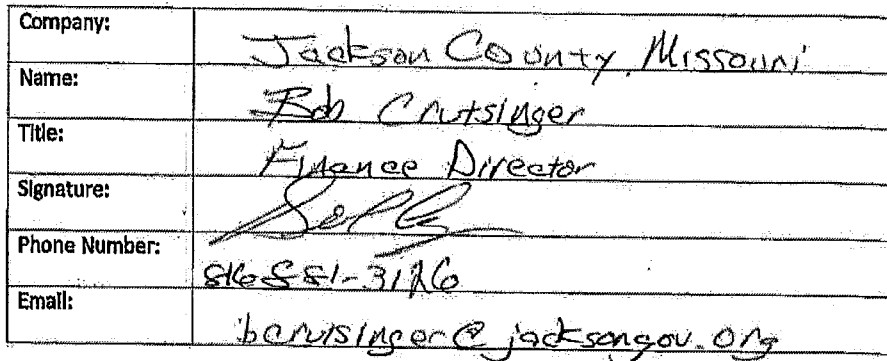 Company: Jackson County, Missouri
Name: Bob Crutsinger
Title: Finance Director
Signature:
Phone Number: 816 881-3126
Email: bcrutsinger@jacksongov.org